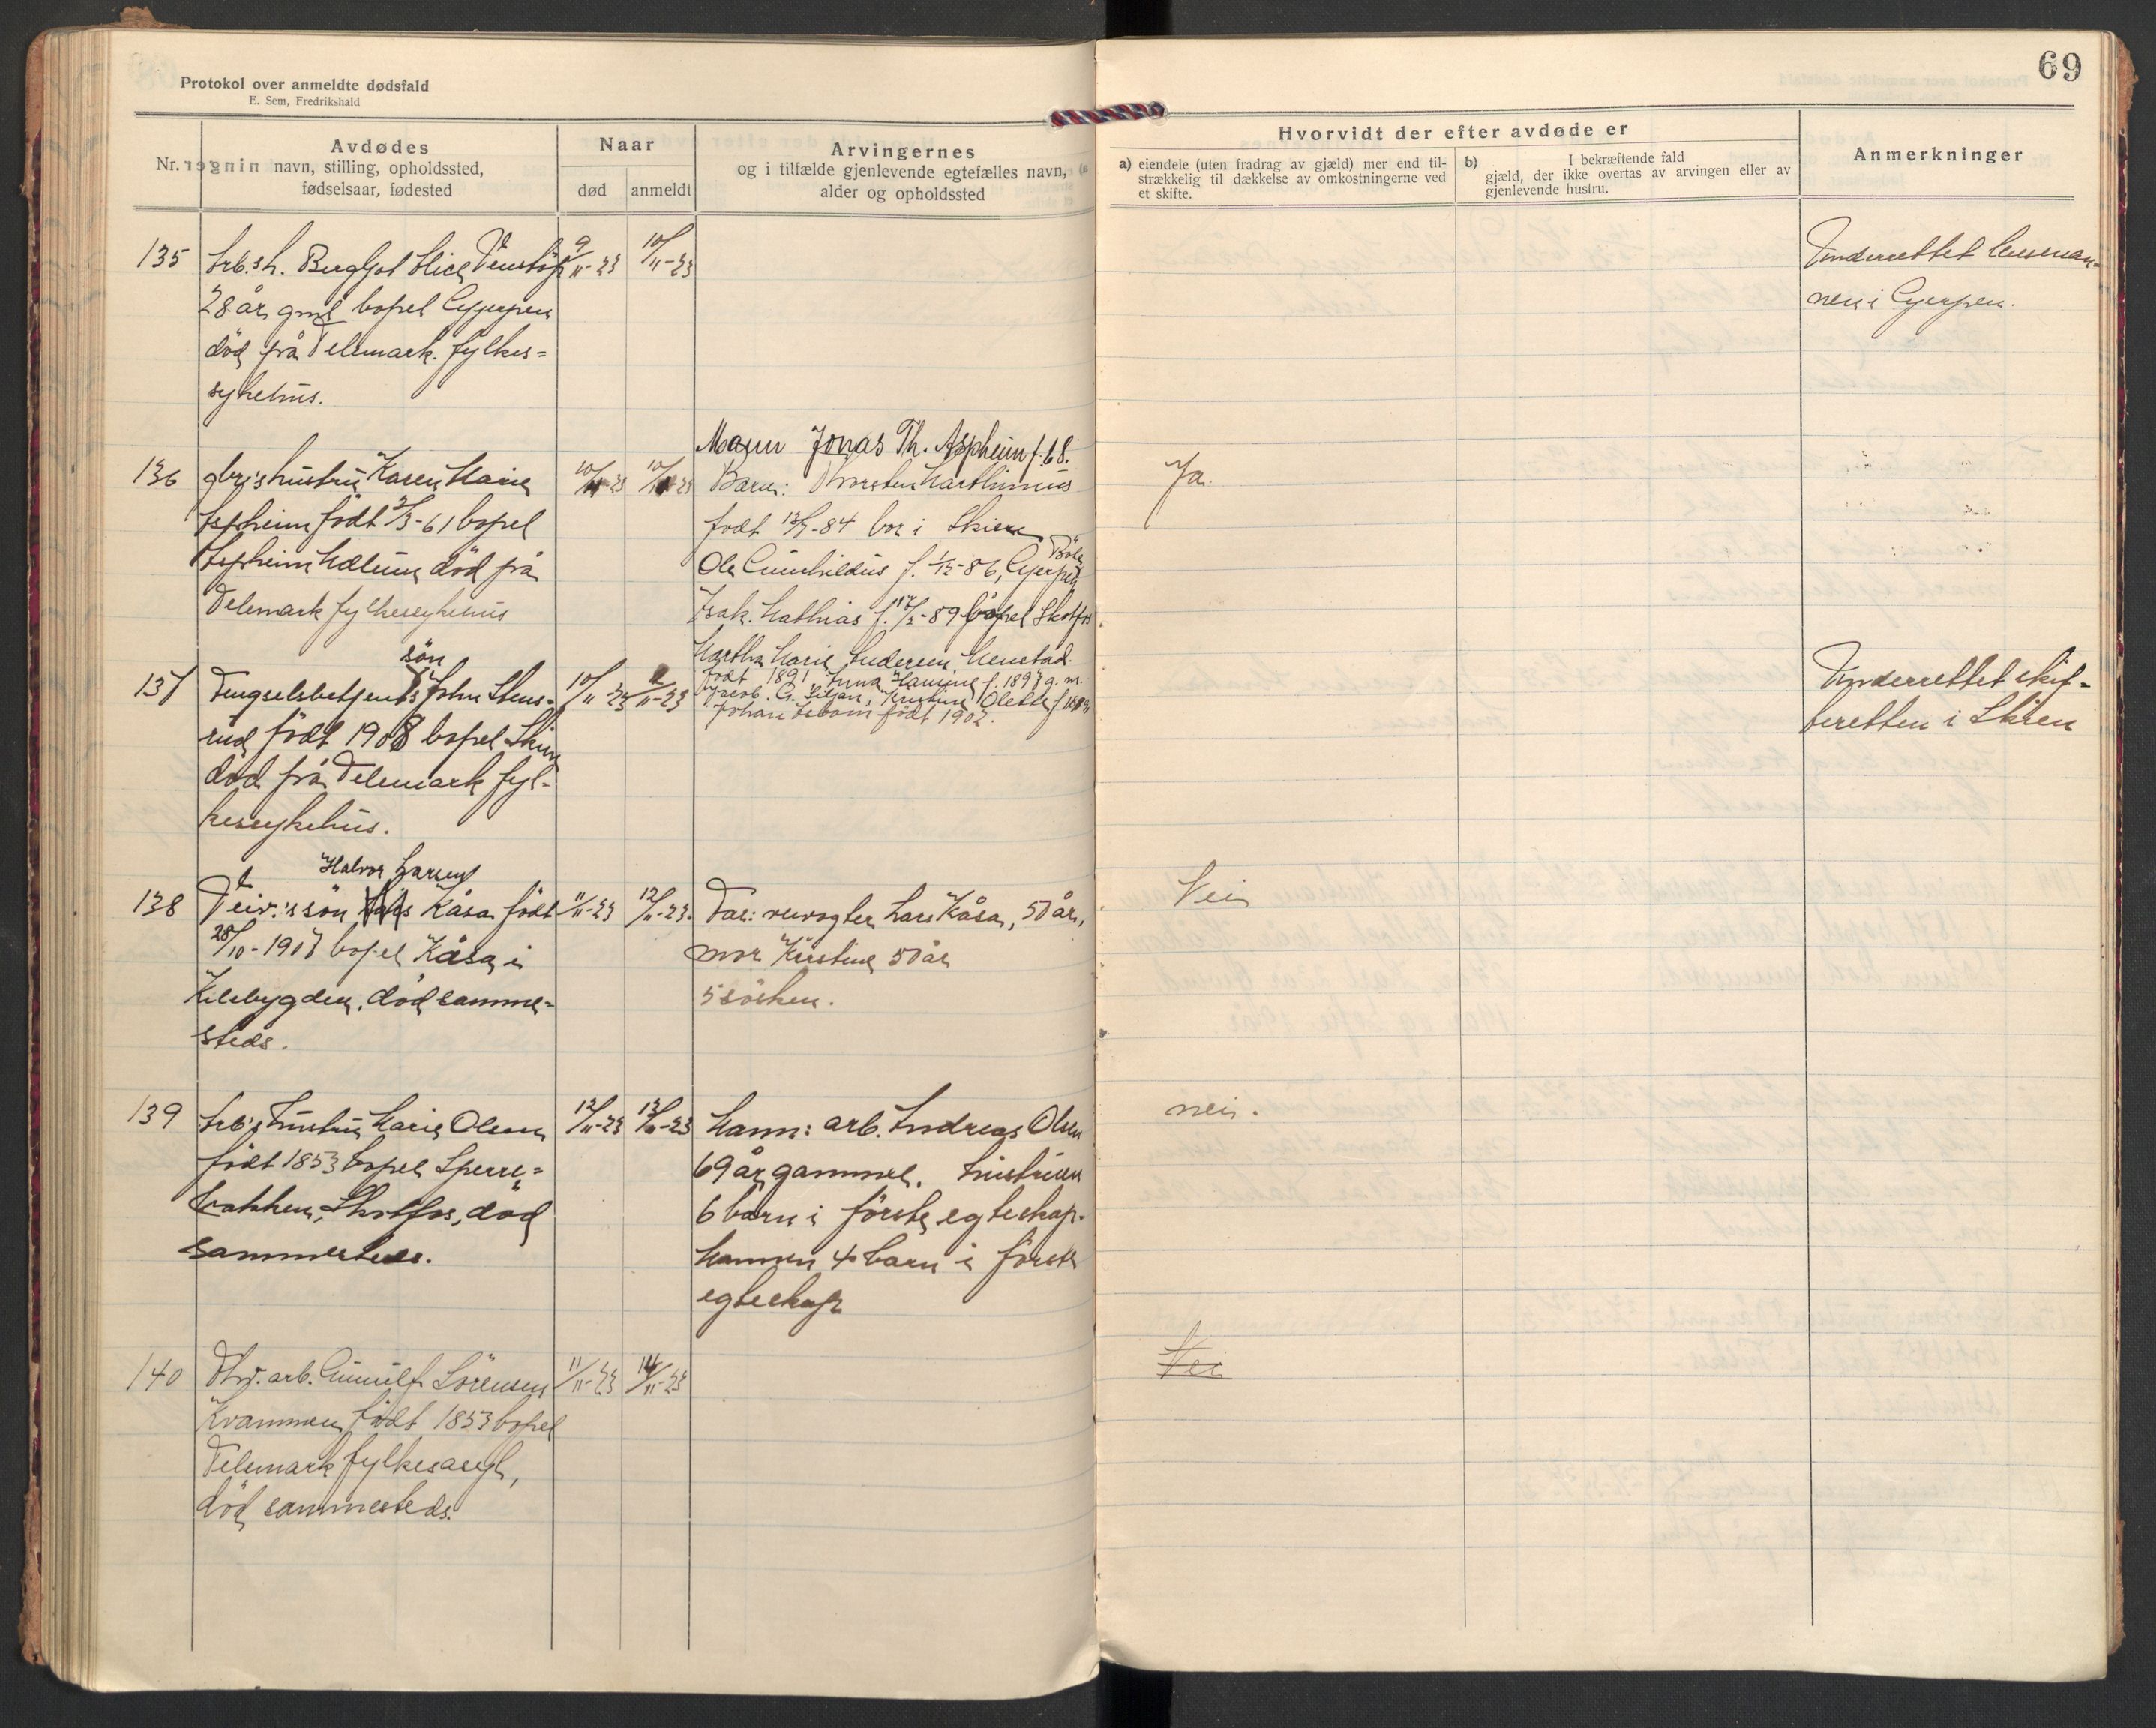 Protokol over anmeldte dødsfald
E. Sem, Fredrikshald
69
Nr.
Avdødes
navn, stilling, opholdssted,
fødselsaar, fødested
Naar
død
anmeldt
Arvingernes
og i tilfælde gjenlevende egtefælles navn,
alder og opholdssted
Hvorvidt der efter avdøde er
a) eiendele (uten fradrag av gjæld) mer end til-
strækkelig til dækkelse av omkostningerne ved
et skifte.
b) I bekræftende fald
gjæld, der ikke overtas av arvingen eller av
gjenlevende hustru.
Anmerkninger
135
Arb.s h. Bergljot Alice Venstøp
28 år gml bopel Gjerpen
död på Telemark. fylkes=
sykehus.
9/11-23
10/11-23
Underrettet lensman-
nen i Gjerpen.
136
gbr.s hustru Karen Marie
Aspheim född 2/3-61 bopel
Aspheim Mælum död på
Telemark fylkessykehus
10/11-23
10/11-23
Mann Jonas Th. Aspheim f. 68.
Barn: Thorsten Marthinius
født 12/7-84 bor i Skien
Ole Gunhildus f. 1/12-86, Gjerpen Böle
Isak Mathias f. 17/2-89 bopel Skotfos
Martha Marie Andersen Menstad.
født 1891 Anna Hamine f. 1897 g. m.
Jacob G. Siljan, Kristine Olette f
Johan født 1902.
Ja.
137
Fengselsbetjents sön John Stens-
rud født 1908 bopel Skien
död på Telemark fyl-
kessykehus.
10/11-23
11-23
Underrettet skif-
teretten i Skien
138
Halvor Larsen
sön Kåsa født
28/10-1907 bopel Kåsa i
Kilebygden, död samme-
steds.
11/11-23
12/11-23.
Far: Lars Kåsa, 50 år,
mor Kirstine 50 år
5 søsken.
Nei
139
Arb.s hustru Marie Olsen
født 1853 bopel Sperre=
bakken, Skotfos, död
sammesteds.
12/11-23
13/11-23
Mann: arb. Andreas Olsen
69 år gammel. hustruen
6 barn i første egteskap.
Mannen 4 barn i første
egteskap
nei.
140
Fhv. arb. Gunulf Sörensen
Kvammen født 1853 bopel
Telemark fylkesasyl,
död sammesteds.
11/11-23
14/11-23
Nei